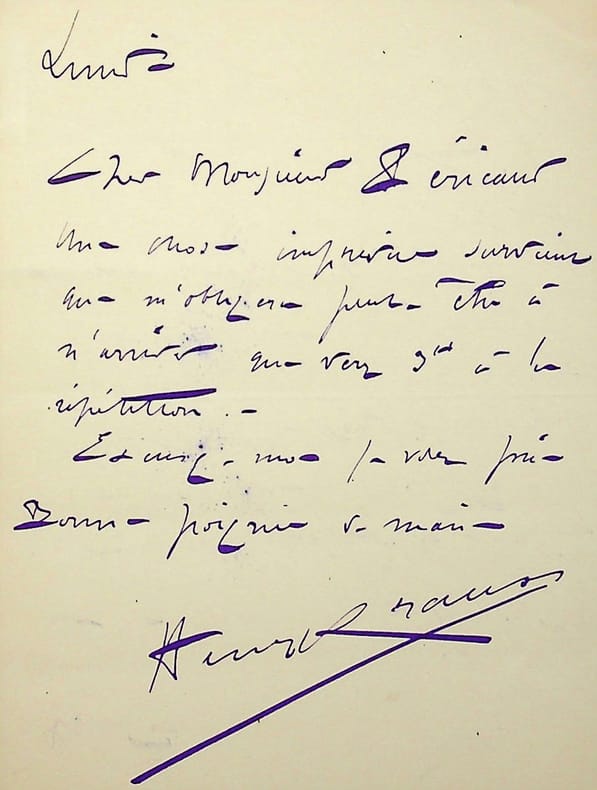 Lundi
Cher Monsieur Péricaud
Une chose imprévue survient
qui m'obligera peut-être à
n'arriver que vers 3h à la
répétition. -
Excusez-moi je vous prie
Bonne poignée de main
Henry Krauss